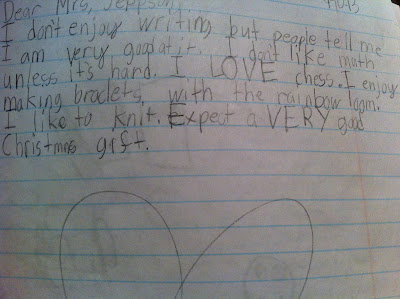 Dear Mrs. Jeppson,
I don't enjoy writing, but people tell me
I am very good at it. I don't like math
unless it's hard. I LOVE chess. I enjoy
making braclets, with the rainbow loom.
I like to knit. Expect a VERY good
Christmas gift.